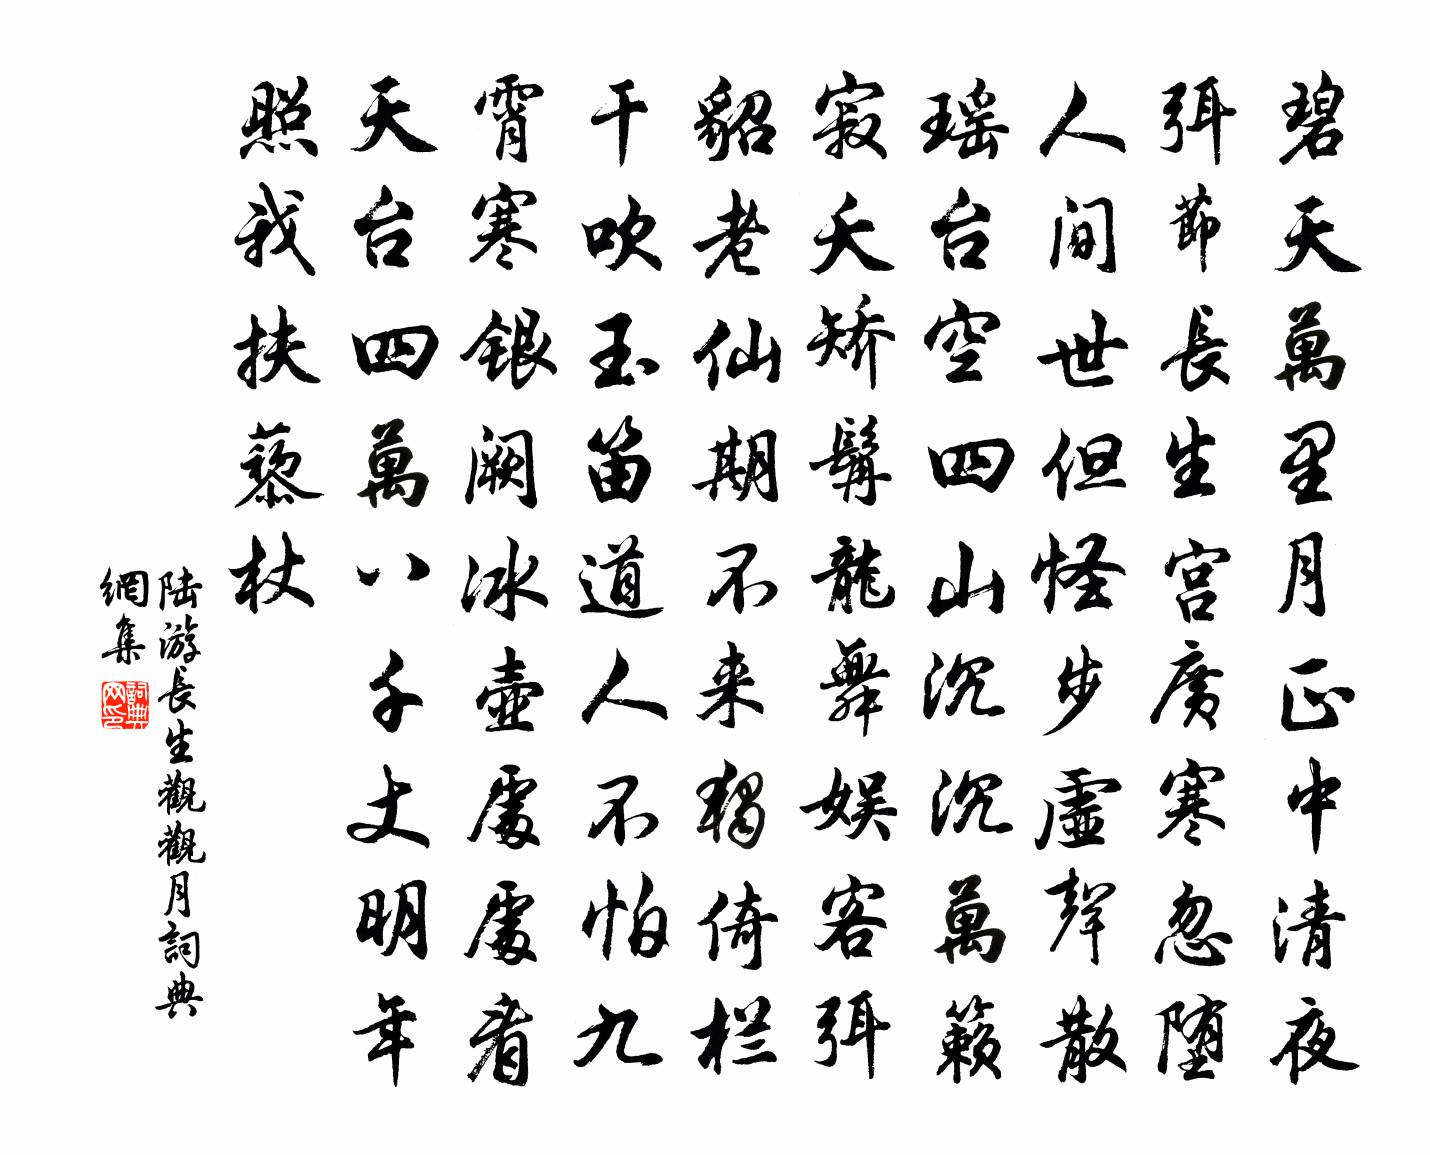 碧天萬里月正中清夜
弭節長生宮廣寒忽堕
人間世但怪步虛聲散
瑶台空四山沉沉萬籟
寂夭矯髯龍舞娱客弭
貂老仙期不来獨倚栏
干吹玉笛道人不怕九
霄寒銀阙冰壺處處看
天台四萬八千丈明年
照我扶藜杖
陆游長生觀觀月詞典
網集
詞典网印